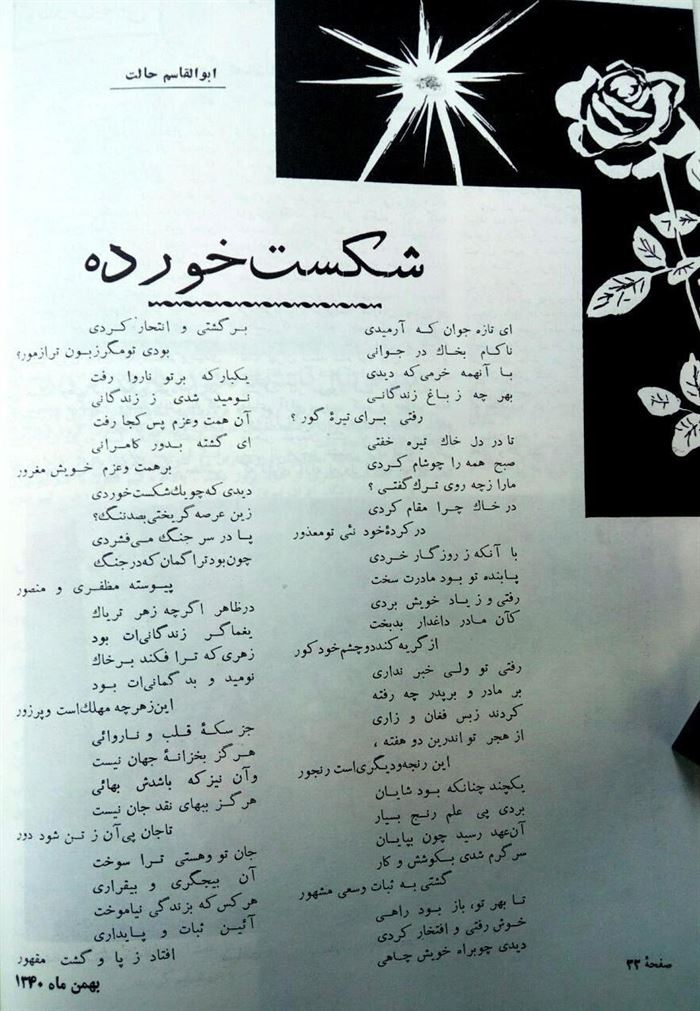 ابوالقاسم حالت
شکست خورده
ای تازه جوان که آرمیدی
ناکام بخاك در جوانی
با آنهمه خرمی‌که دیدی
بهر چه ز باغ زندگانی
رفتی برای تیرهٔ گور ؟
تا در دل خاك تیره خفتی
صبح همه را چوشام کردی
مارا زچه روی ترك گفتی ؟
در خاك چرا مقام کردی
در کردهٔ خود نئی تومعذور
با آنکه ز روزگار خردی
پابنده تو بود مادرت سخت
رفتی و ز یاد خویش بردی
کآن مادر داغدار بدبخت
از گریه کند دو چشم خود کور
رفتی تو ولی خبر نداری
بر مادر و برپدر چه رفته
کردند زبس فغان و زاری
از هجر تو اندرین دو هفته ،
این رنجه ودیگری است رنجور
یکچند چنانکه بود شایان
بردی پی علم رنج بسیار
آن عهد رسید چون بپایان
سرگرم شدی بکوشش و کار
گشتی به ثبات وسعی مشهور
تا بهر تو، باز بود راهی
خوش رفتی و افتخار کردی
دیدی چوبراه خویش چاهی
برگشتی و انتحار کردی
بودی تومگر زبون تر ازمور؟
یکبار که بر تو ناروا رفت
نومید شدی ز زندگانی
آن همت وعزم پس کجا رفت
ای گشته بدور کامرانی
برهمت وعزم خویش مغرور
دیدی که چویك شکست خوردی
زین عرصه گریختی بصد ننگ؟
پا در سر جنگ می فشردی
چون بود ترا گمان که در جنگ
پیوسته مظفری و منصور
درظاهر اگرچه زهر تریاك
یغماگر زندگانی‌ات بود
زهری که ترا فکند برخاك
نومید و بدگمانی‌ات بود
این زهر چه مهلك است وپرزور
جز سکهٔ قلب و ناروائی
هرگز بخزانهٔ جهان نیست
وآن نیز که باشدش بهائی
هرگز ببهای نقد جان نیست
تاجان پی آن ز تن شود دور
جان تو وهستی ترا سوخت
آن بیجگری و بیقراری
هرکس که بزندگی نیاموخت
آئین ثبات و پایداری
افتاد ز پا و گشت مقهور
بهمن ماه ۱۳۴۰
صفحهٔ ۳۳